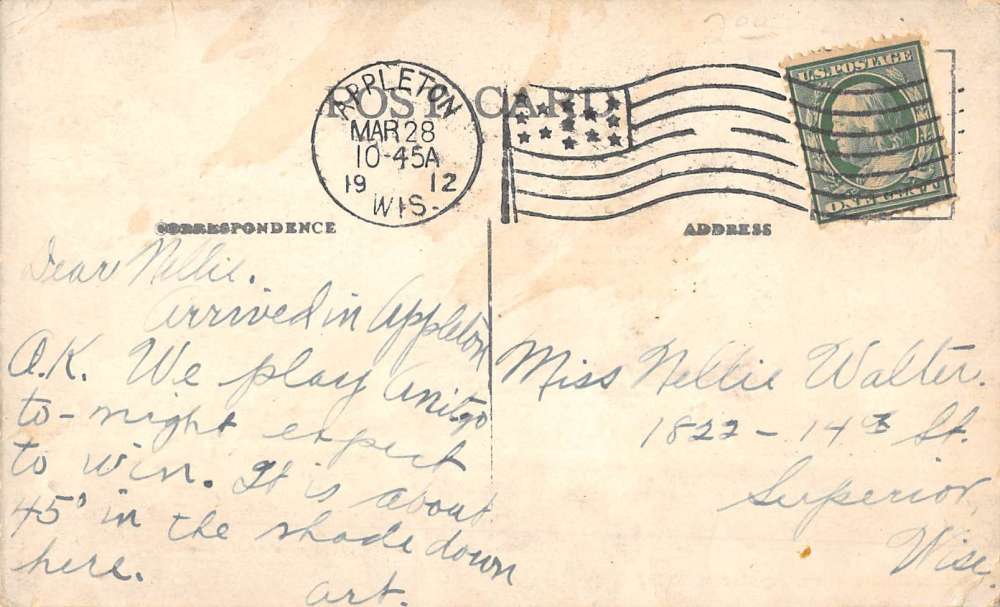 POST CARD
APPLETON
MAR 28
10-45A
19 12
WIS-
U.S. POSTAGE
ONE CENT
CORRESPONDENCE
ADDRESS
Dear Nellie.
Arrived in Appleton
O.K. We play Antigo
to-night expect
to win. It is about
45° in the shade down
here.
Art.
Miss Nellie Walter.
1822 - 14 St.
Superior,
Wisc.